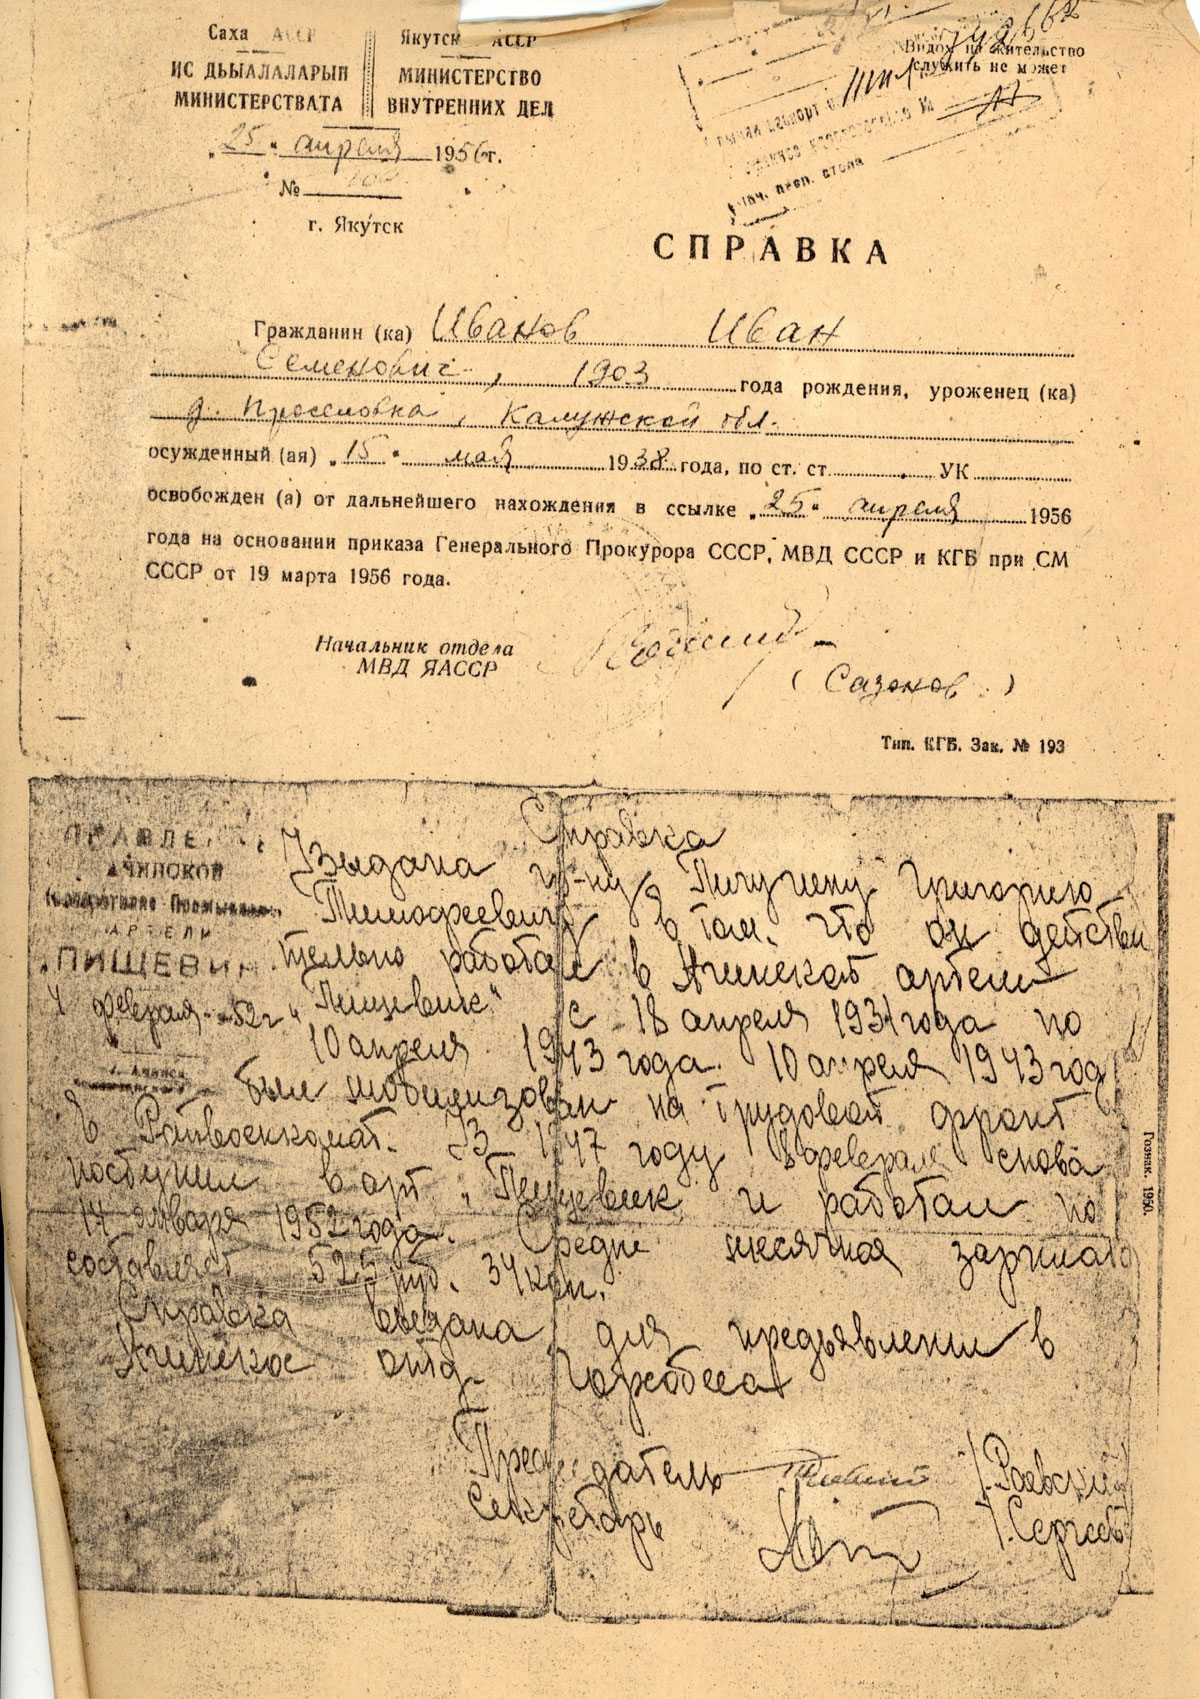 Саха АССР
ИС ДЬЫАЛАЛАРЫН
МИНИСТЕРСТВАТА
Якутск АССР
МИНИСТЕРСТВО
ВНУТРЕННИХ ДЕЛ
Видом на жительство
служить не может
"25" апреля 1956 г.
№
г. Якутск
СПРАВКА
Гражданин (ка) Иванов Иван
Семенович, 1903 года рождения, уроженец (ка)
д. Проселовка, Калужской обл.
осужденный (ая) "15" мая 1938 года, по ст. ст. УК
освобожден (а) от дальнейшего нахождения в ссылке "25" апреля 1956
года на основании приказа Генерального Прокурора СССР, МВД СССР и КГБ при СМ
СССР от 19 марта 1956 года.
Начальник отдела
МВД ЯАССР
(Сазонов)
Тип. КГБ. Зак. № 193
ПРАВЛЕ
АЧИНСКОЙ
АРТЕЛИ
"ПИЩЕВИК
4 февраля 52 г
г. Ачинск
Справка
Выдана гр-ну Пичугину Григорию
Тимофеевичу в том, что он действи
тельно работал в Ачинской артели
"Пищевик" с 18 апреля 1931 года по
10 апреля 1943 года. 10 апреля 1943 год
был мобилизован на трудовой фронт
в Райвоенкомат. В 1947 году февраля снова
поступил в арт "Пищевик и работал по
14 января 1952 года. Средне месячная зарплата
составляет 525 руб. 34 коп.
Справка выдана для предъявления в
Ачинское отд. Горсобеса
Председатель /.Раевский
Секретарь /.Сергеев
Гознак. 1950.